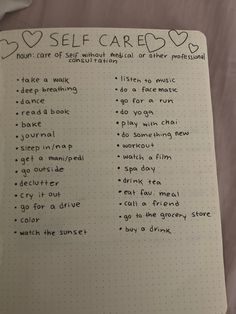 SELF CARE
noun: care of self without medical or other professional
consultation
• take a walk
• deep breathing
• dance
• read a book
• bake
• journal
• sleep in/nap
• get a mani/pedi
• go outside
• declutter
• cry it out
• go for a drive
• color
• watch the sunset
• listen to music
• do a facemask
• go for a run
• do yoga
• play with chai
• do something new
• workout
• watch a film
• spa day
• drink tea
• eat fav. meal
• call a friend
• go to the grocery store
• buy a drink